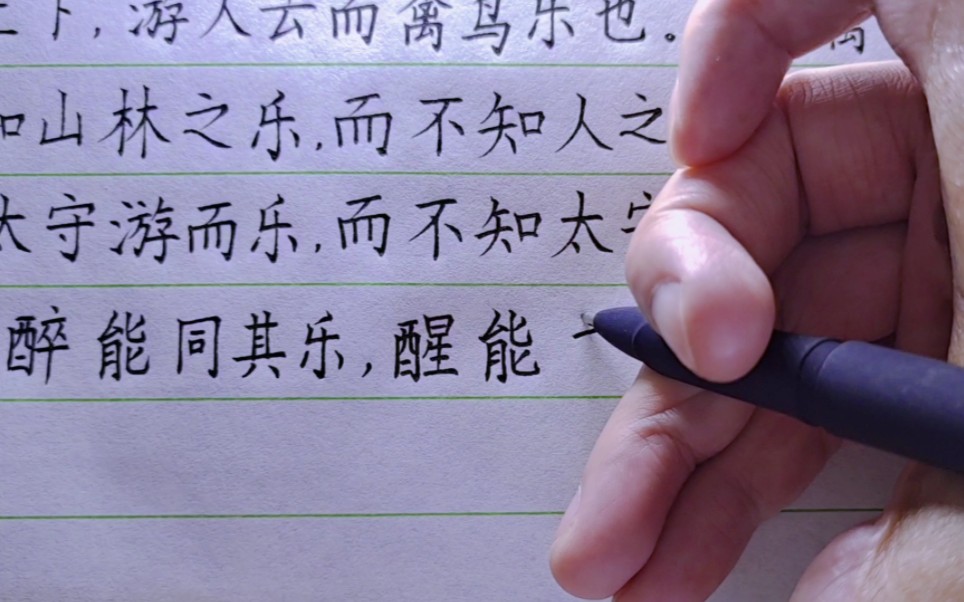 下,游人去而禽鸟乐也。
山林之乐,而不知人之
太守游而乐,而不知太
醉能同其乐,醒能